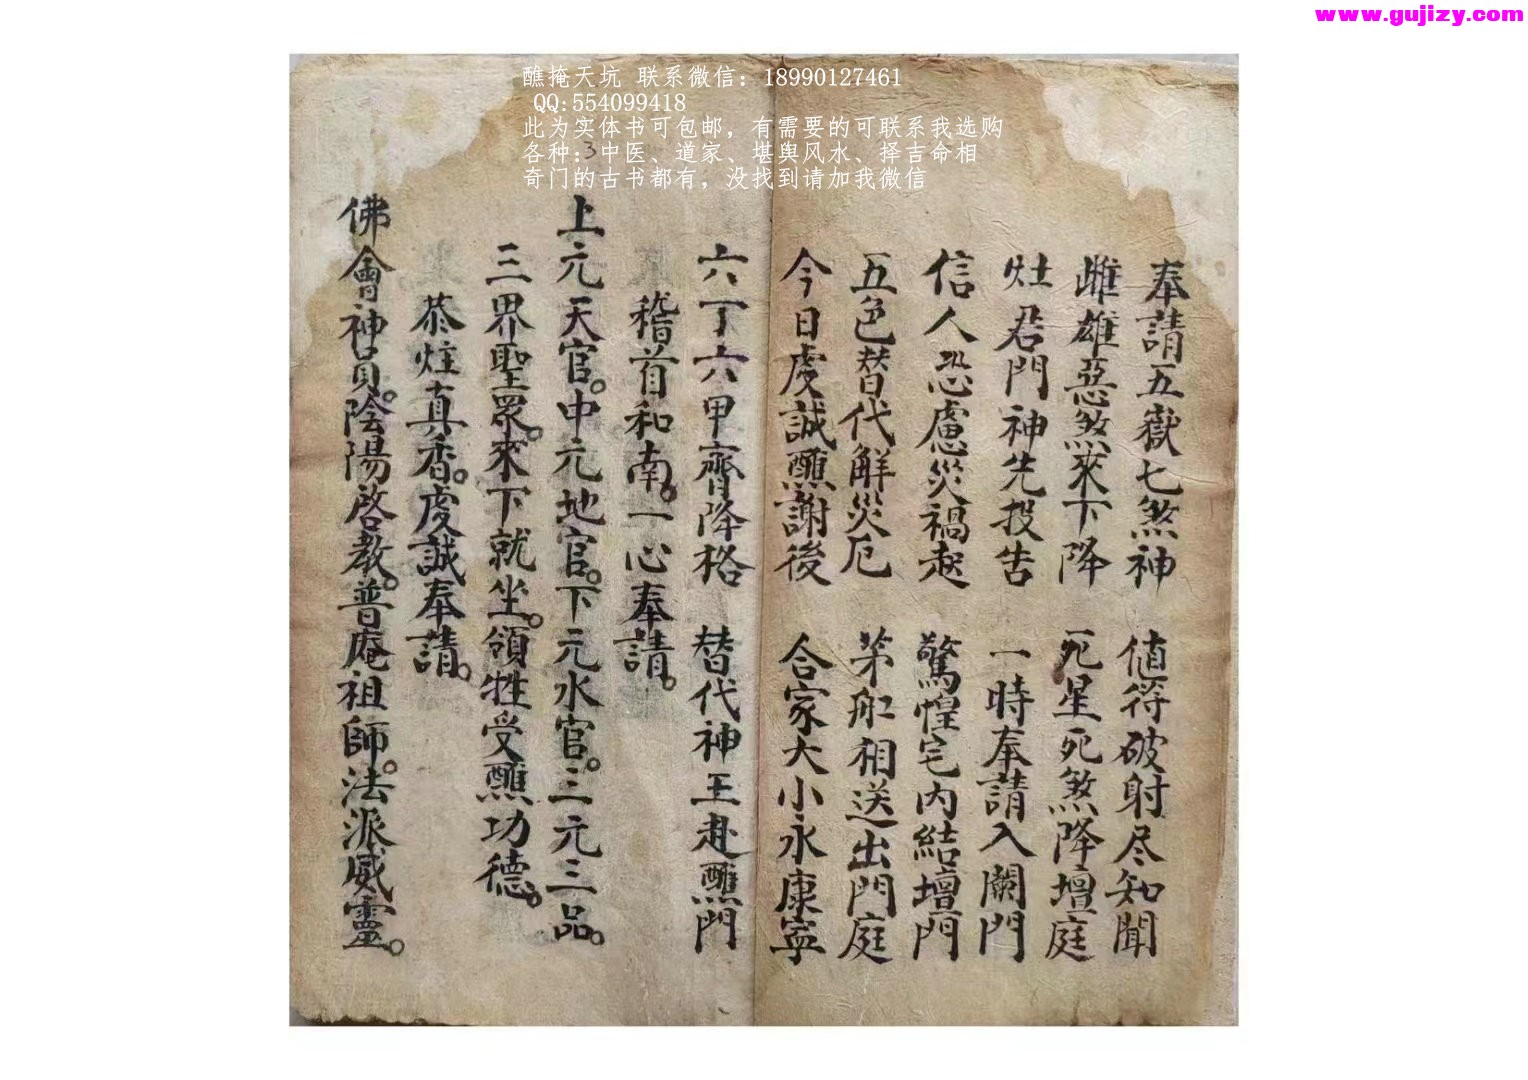 www.gujizy.com
醮掩天坑 联系微信：18990127461
QQ:554099418
此为实体书可包邮，有需要的可联系我选购
各种：中医、道家、堪舆风水、择吉命相
奇门的古书都有，没找到请加我微信
3
奉請五嶽七煞神 値符破射尽知聞
雌雄惡煞來下降 死星死煞降壇庭
灶君門神先投告 一時奉請入闕門
信人恐慮災禍起 驚惶宅内結壇門
五色替代解災厄 茅舡相送出門庭
今日虔誠醮謝後 合家大小永康寧
六丁六甲齊降格 替代神王赴醮門
稽首和南。一心奉請。
上元天官。中元地官。下元水官。三元三品。
三界聖眾。來下就坐。領牲受醮功德。
恭炷真香。虔誠奉請。
佛會神員。陰陽啓教。普庵祖師。法派威靈。